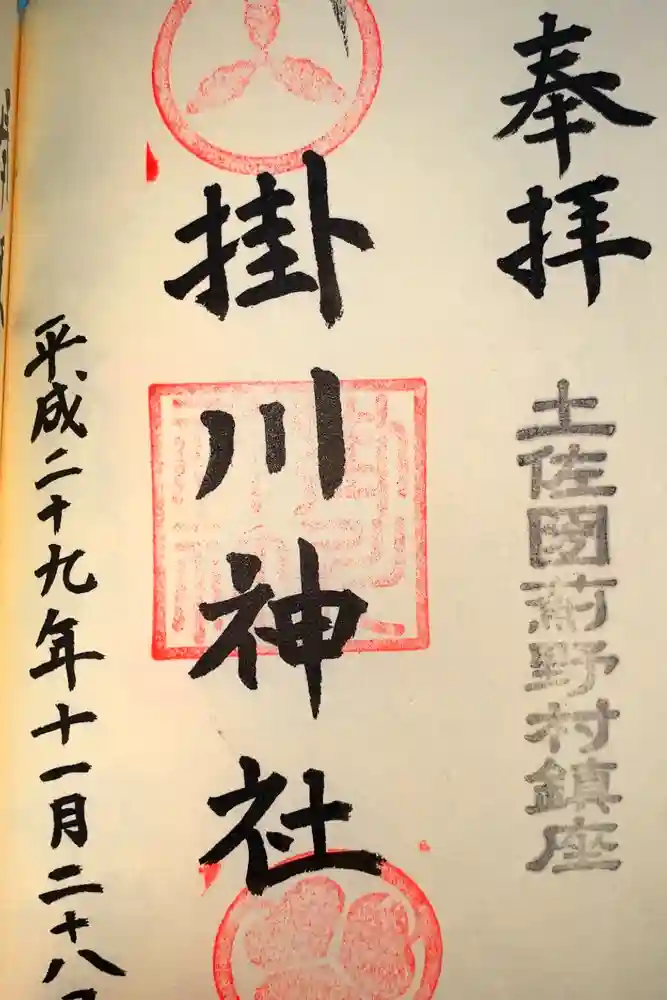 奉拝
土佐國蒭野村鎮座
掛川神社
平成二十九年十一月二十八日